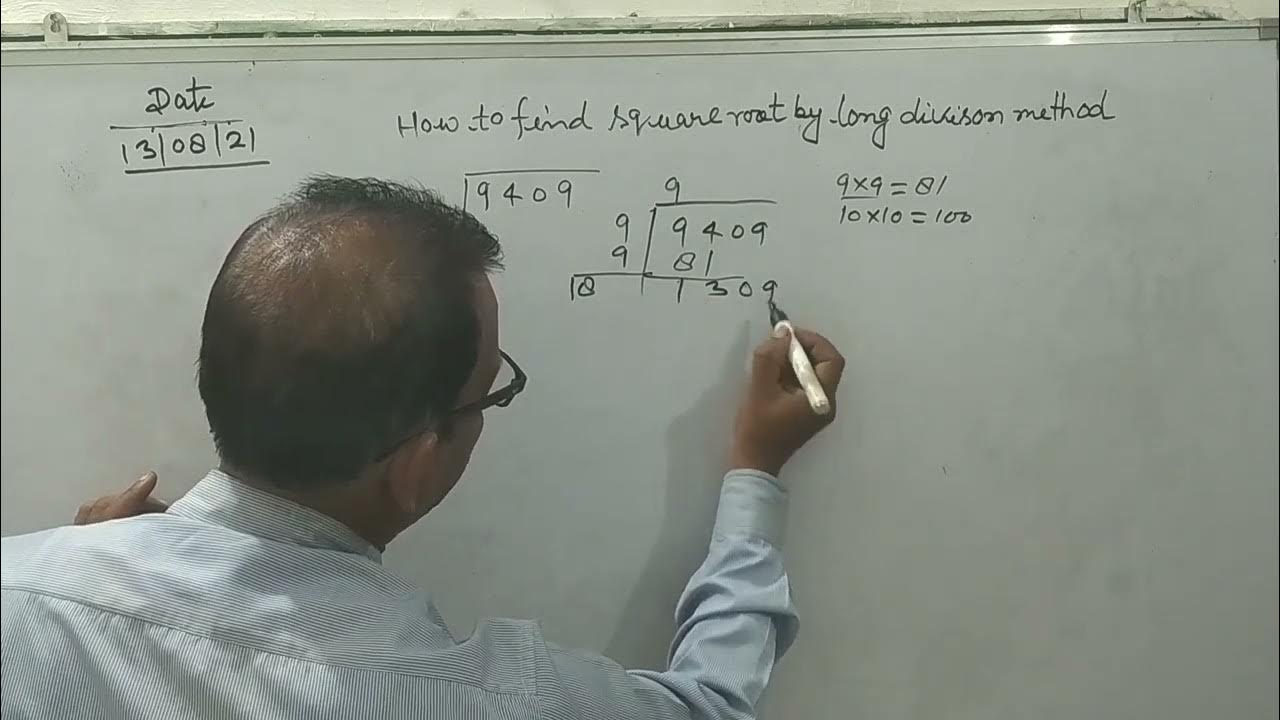 Date
13/08/21
How to find square root by long divison method
9409
9
9 9409
9 81
18 1309
9×9=81
10×10=100